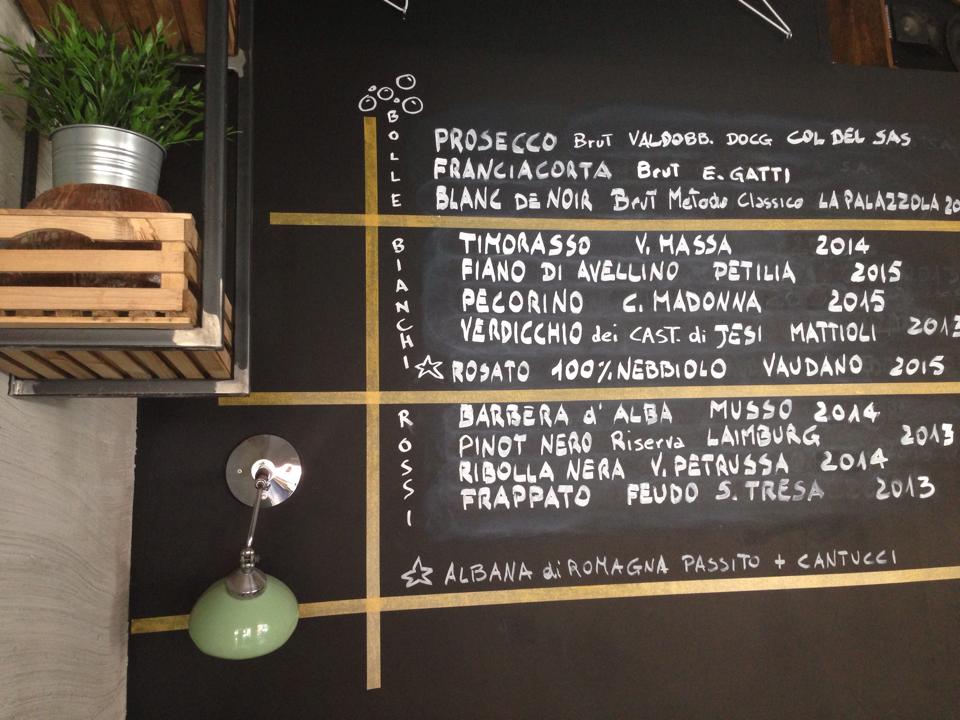 BOLLE
PROSECCO BruT VALDOBB. DOCG COL DEL SAS
FRANCIACORTA BruT E. GATTI
BLANC DE NOIR BruT Metodo Classico LA PALAZZOLA 20
BIANCHI
TIMORASSO V. MASSA 2014
FIANO DI AVELLINO PETILIA 2015
PECORINO C. MADONNA 2015
VERDICCHIO dei CAST. di JESI MATTIOLI 2013
ROSATO 100% NEBBIOLO VAUDANO 2015
ROSSI
BARBERA d' ALBA MUSSO 2014
PINOT NERO Riserva LAIMBURG 2013
RIBOLLA NERA V. PETRUSSA 2014
FRAPPATO FEUDO S. TRESA 2013
ALBANA di ROMAGNA PASSITO + CANTUCCI